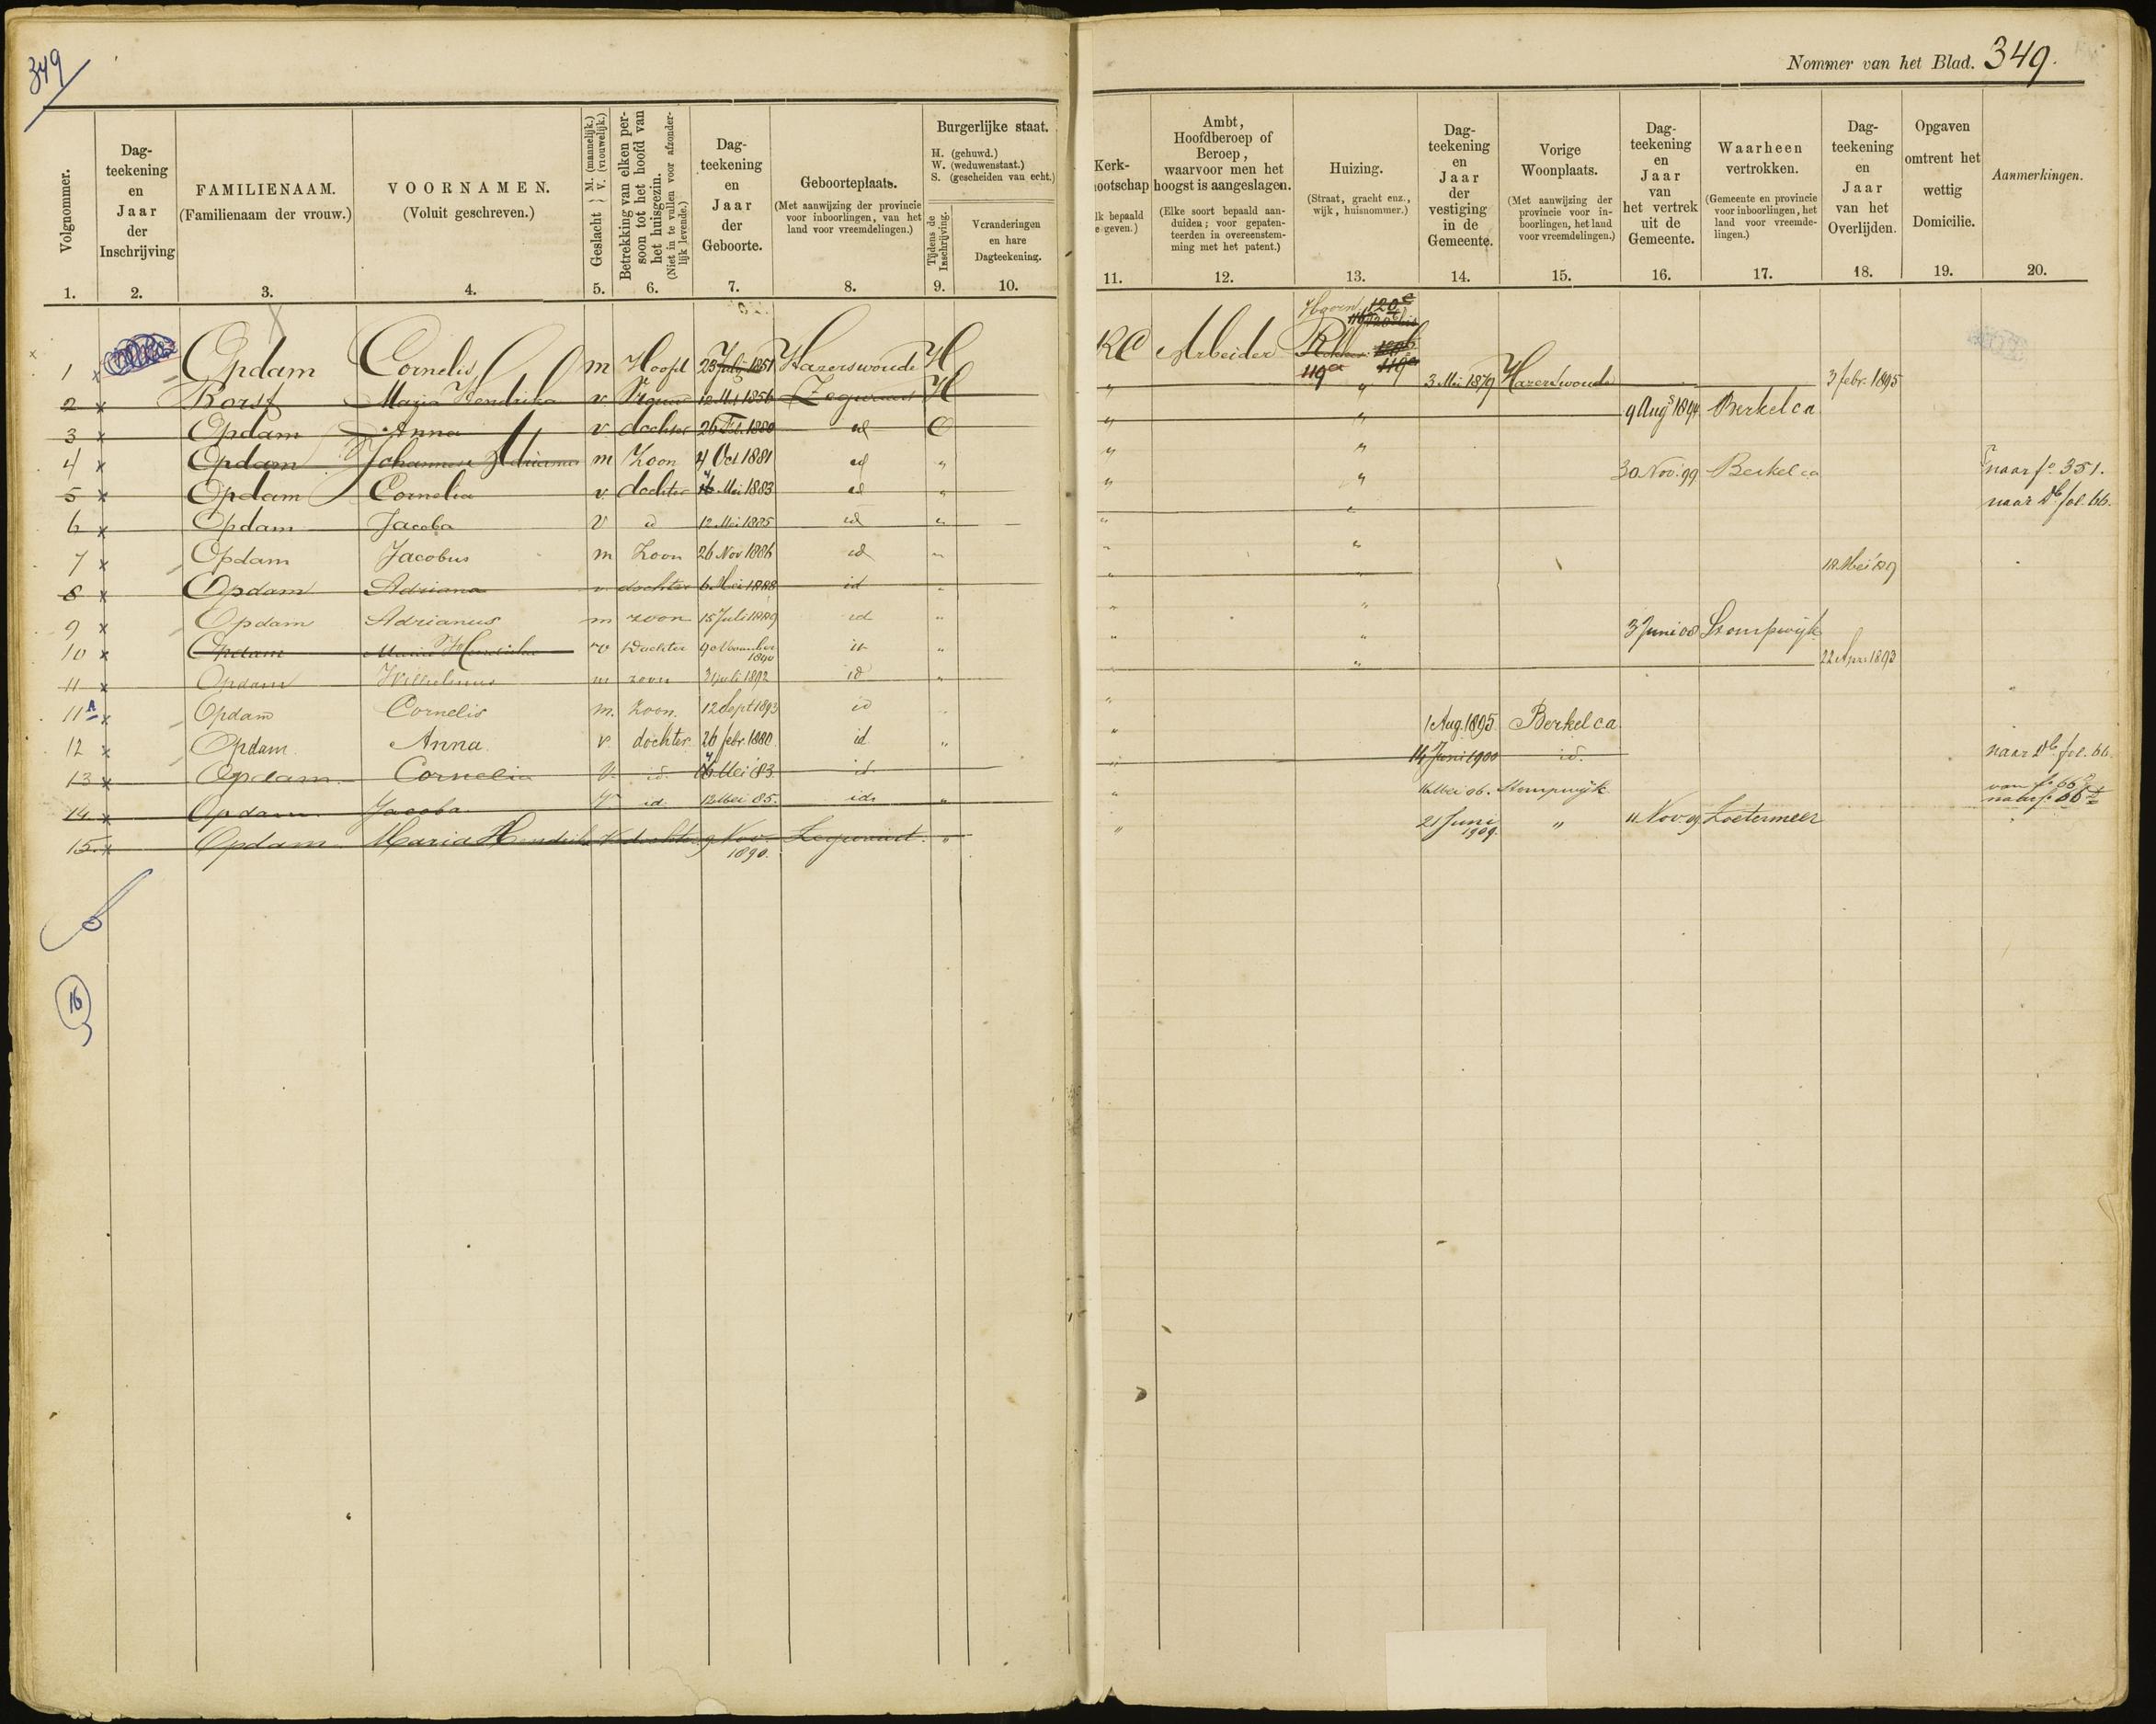 349
Nommer van het Blad. 349.
Volgnommer.
1.
Dag-
teekening
en
Jaar
der
Inschrijving
2.
FAMILIENAAM.
(Familienaam der vrouw.)
3.
VOORNAMEN.
(Voluit geschreven.)
4.
Geslacht } M. (mannelijk.) V. (vrouwelijk.)
5.
Betrekking van elken per-
soon tot het hoofd van
het huisgezin.
(Niet in te vullen voor afzonder-
lijk levende.)
6.
Dag-
teekening
en
Jaar
der
Geboorte.
7.
Geboorteplaats.
(Met aanwijzing der provincie
voor inboorlingen, van het
land voor vreemdelingen.)
8.
Burgerlijke staat.
H. (gehuwd.)
W. (weduwenstaat.)
S. (gescheiden van echt.)
Tijdens de
Inschrijving.
9.
Veranderingen
en hare
Dagteekening.
10.
Kerk-
nootschap
lk bepaald
e geven.)
11.
Ambt,
Hoofdberoep of
Beroep,
waarvoor men het
hoogst is aangeslagen.
(Elke soort bepaald aan-
duiden; voor gepaten-
teerden in overeenstem-
ming met het patent.)
12.
Huizing.
(Straat, gracht enz.,
wijk, huisnommer.)
13.
Dag-
teekening
en
Jaar
der
vestiging
in de
Gemeente.
14.
Vorige
Woonplaats.
(Met aanwijzing der
provincie voor in-
boorlingen, het land
voor vreemdelingen.)
15.
Dag-
teekening
en
Jaar
van
het vertrek
uit de
Gemeente.
16.
Waarheen
vertrokken.
(Gemeente en provincie
voor inboorlingen, het
land voor vreemde-
lingen.)
17.
Dag-
teekening
en
Jaar
van het
Overlijden.
18.
Opgaven
omtrent het
wettig
Domicilie.
19.
Aanmerkingen.
20.
1 x Opdam Cornelis m Hoofd 23 July 1851 Hazerswoude H RC Arbeider 119a
2 x Borst Maria Hendrika v. 1856 Zegwaard H " " 3 Mei 1879 Hazerswoude 3 febr. 1895
3 x Opdam Anna v. dochter 26 Feb. 1880 id " " 9 Augs 1894 Berkel ca
4 x Opdam Johannes Adrianus m Zoon 4 Oct 1881 id " " " naar fo 351.
5 x Opdam Cornelia v. dochter Mei 1883 id " " " 30 Nov. 99 Berkel ca
6 x Opdam Jacoba v id 12 Mei 1885 id " " " naar Db fol. 66.
7 x Opdam Jacobus m Zoon 26 Nov 1886 id " " "
8 x Opdam Adriana v. dochter 6 Mei 1888 id " " " 18 Mei 89
9 x Opdam Adrianus m zoon 15 Juli 1889 id " " "
10 x Opdam Maria Hendrika v Dochter 9 November 1890 id " " " 3 Juni 08 Stompwijk
11 x Opdam Wilhelmus m zoon 3 juli 1892 id " " " 22 Apr. 1893
11A x Opdam Cornelis m. Zoon. 12 Sept 1893 id "
12 x Opdam Anna. v. dochter 26 febr. 1880. id " " 1 Aug. 1895 Berkel ca
13 x Opdam Cornelia v. id. Mei 83. id. " 14 Juni 1900 id. naar Db fol. 66
14 x Opdam Jacoba v id. 12 Mei 85. id. " " Mei 06. Stompwijk
15 x Opdam Maria Hendrika v dochter 9 Nov. 1890. Zegwaart. " " 21 Juni 1909. " 11 Nov 09 Zoetermeer
16